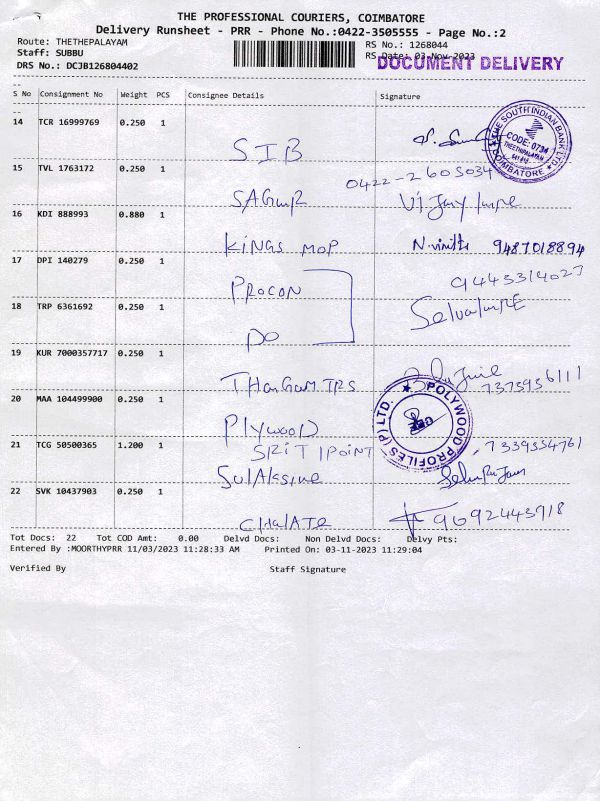 THE PROFESSIONAL COURIERS, COIMBATORE
Delivery Runsheet - PRR - Phone No.:0422-3505555 - Page No.:2
Route: THETHEPALAYAM
RS No.: 1268044
Staff: SUBBU
RS Date: 03-Nov-2023
DRS No.: DCJB126804402
DOCUMENT DELIVERY
S No Consignment No Weight PCS Consignee Details Signature
14 TCR 16999769 0.250 1
SIB
THE SOUTH INDIAN BANK LTD.
CODE: 0734
COIMBATORE
15 TVL 1763172 0.250 1
0422-2605034
16 KDI 888993 0.880 1
KINGS MOP 9487018894
17 DPI 140279 0.250 1
PROCON 9443314027
18 TRP 6361692 0.250 1
DO
19 KUR 7000357717 0.250 1
7373936111
20 MAA 104499900 0.250 1
POLYWOOD PROFILES (P) LTD.
PlywooD
21 TCG 50500365 1.200 1
1POINT 7339334761
22 SVK 10437903 0.250 1
9692443918
Tot Docs: 22 Tot COD Amt: 0.00 Delvd Docs: Non Delvd Docs: Delvy Pts:
Entered By :MOORTHYPRR 11/03/2023 11:28:33 AM Printed On: 03-11-2023 11:29:04
Verified By Staff Signature